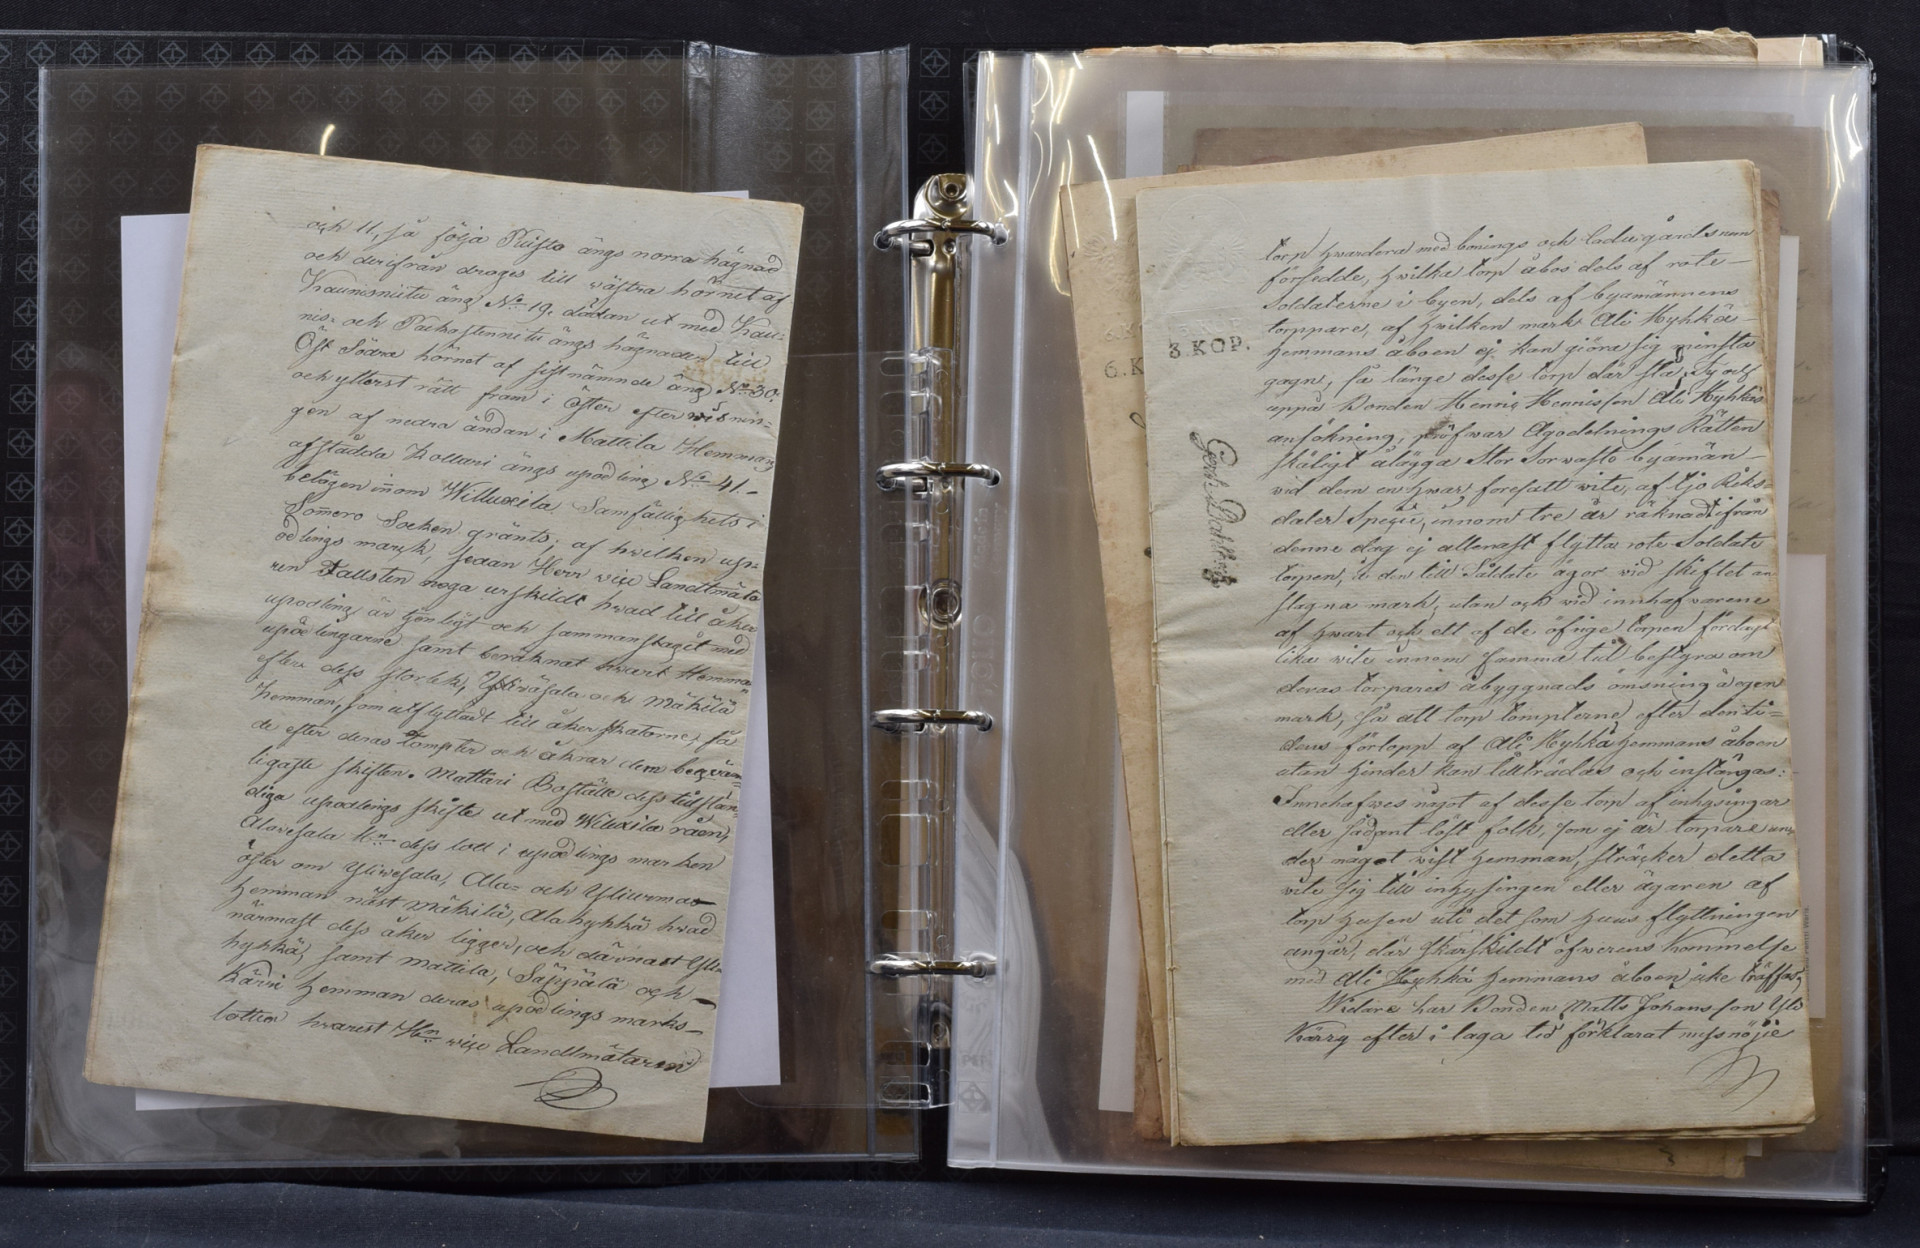 och 11, så följa Puisto ängs norra hägnad
och derifrån drages till wästra hörnet af
Kaunisniitu äng No 19. dädan ut med Kau-
nis- och Pahostennitu ängs hägnader till
Öst Södra hörnet af sistnämnde äng No 30.
och ytterst rätt fram i Öster efter wisnin=
gen af nedra ändan i Mattila Hemmans
afstådda Kollari ängs upodling No 41. –
belägen inom Williuxila Samfällighets i
Somero Socken gränts; af hwilken up=
odlings mark, sedan Herr vice Landtmäta
ren Tallsten noga urskildt hwad till åker
upodling är tjenligt och sammanslagit med
upodlingarne samt beräknat hwart Hemman
efter dess storlek, Yliwäsala och Mäkilä
hemman, som utflyttadt till åker skatorne, få
de efter deras tompter och åkrar dem beqväm=
ligaste skiften. Mattäri Boställe dess tidstän=
diga upodlings skifte ut med Wiluxila råen,
Alawesala Hn dess lott i upodlings marken
öster om Yliwesala, Ala= och Yliurmas
hemman näst Mäkilä, Alahyhkä hwad
närmast dess åker ligger, och därnäst Yli=
hyhkä, samt Mattila, Säppälä och –
Kärri hemman deras upodlings marks–
lotter hwarest Hn vice Landtmätaren
3 KOP.
6. K
torp hwardera med bonings och ladugårdsrum
försedde, hwilka torp åbos dels af rote–
Soldaterne i byen, dels af byamännens
torppare, af hwilken mark Ali Hyhkä–
hemmans åboen ej kan giöra sig minsta
gagn, så länge desse torp där stå; Ty och
uppå Bonden Henric Hennisson Ali Hyhkäs
ansökning, pröfwar Ägodelnings Rätten
skäligt ålägga Stor Sorwasto byamän–
wid dem en hwar, foresatt wite, af tjo Riks=
daler Specie, innom tre år räknadt ifrån
denne dag ej allenast flytta rote Soldate
torpen, å den till Soldate ägor wid skiftet an
slagna mark, utan och wid innhafwarens
af hwart och ett af de öfrige torpen fördubb
lika wite innom samma tid bestyra om
deras torpares åbyggnads ömsning å egen
mark, så att torp tompterne efter den ti=
dens förlopp af Ali Hyhkä hemmans åboen
utan hinder kan tillträdas och instängas:
Innehafwes något af desse torp af inhysingar
eller sådant löst folk, som ej är torpare un=
der något wist hemman, sträcker detta
wite sig till inhysingen eller ägaren af
torp husen uti det som huus flyttningen
angår, där skarskildt öfwerens kommelse
med Ali Hyhkä hemmans åboen icke träffas;
Widare har Bonden Matts Johansson Yli
Kärry efter i laga tid förklarat missnöje